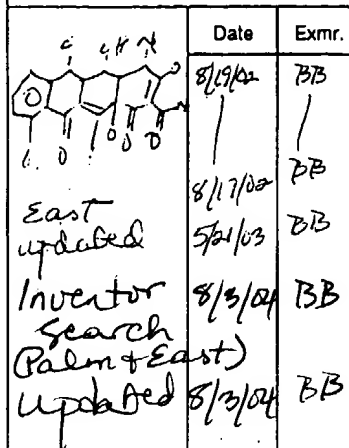 Date Exmr.
8/19/02 BB
8/17/02 BB
East
updated 5/21/03 BB
Inventor 8/3/04 BB
Search
(Palm + East)
Updated 8/3/04 BB